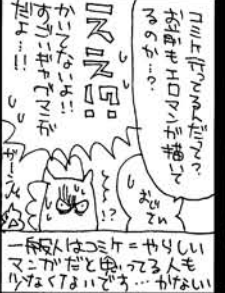 コミケ行ってるんだって?
お前もエロマンガ描いて
るのか…?
ええ!?
かいてないよ!!
すごいギャグマンガ
だよ…!!
おじさん
!?
がーん
一般人はコミケ=やらしい
マンガだと思ってる人も
少なくないです…かけない